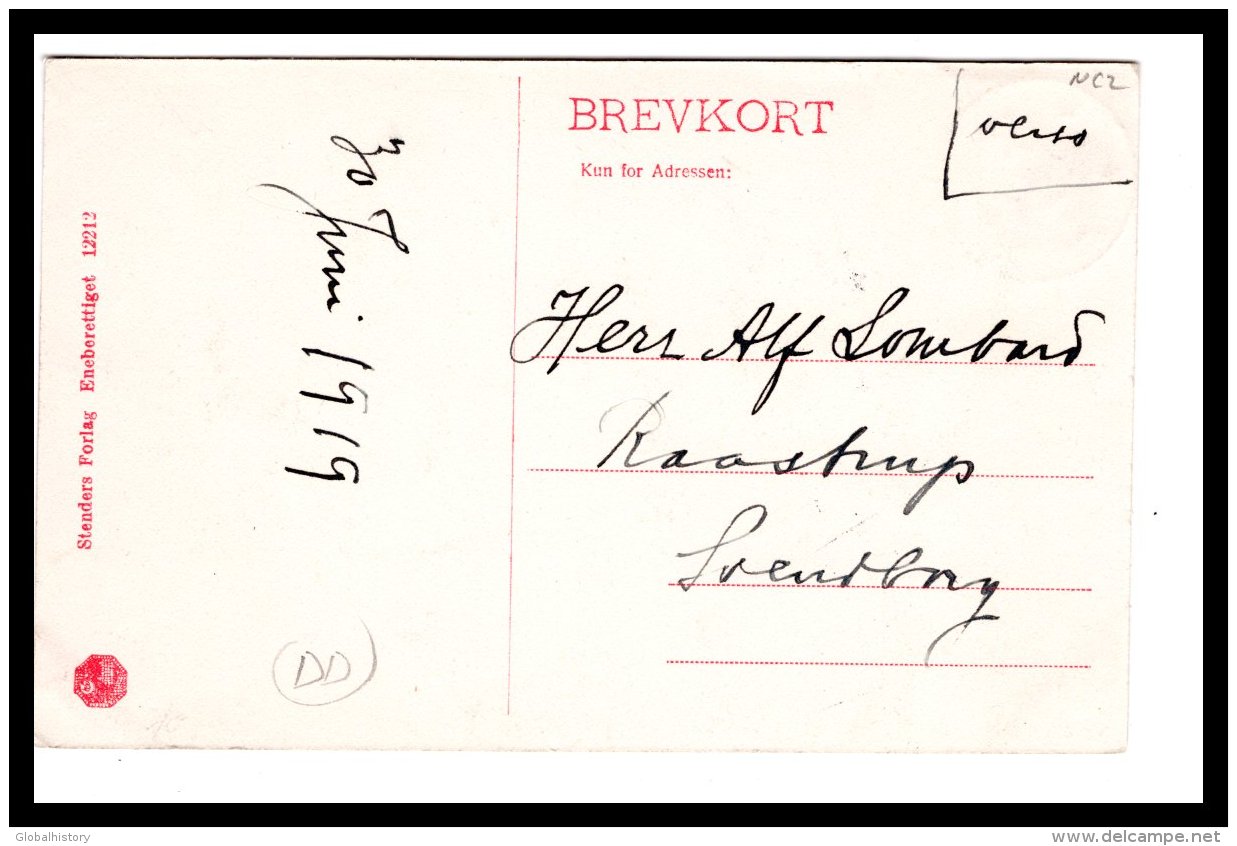 Stenders Forlag Eneberettiget 12212
30 Juni 1919
DD
BREVKORT
Kun for Adressen:
NCZ
verso
Herr Alf Lombard
Raastrup
Svendborg
Globalhistory
www.delcampe.net